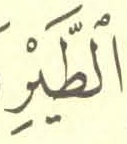 الْطَّيْرِ